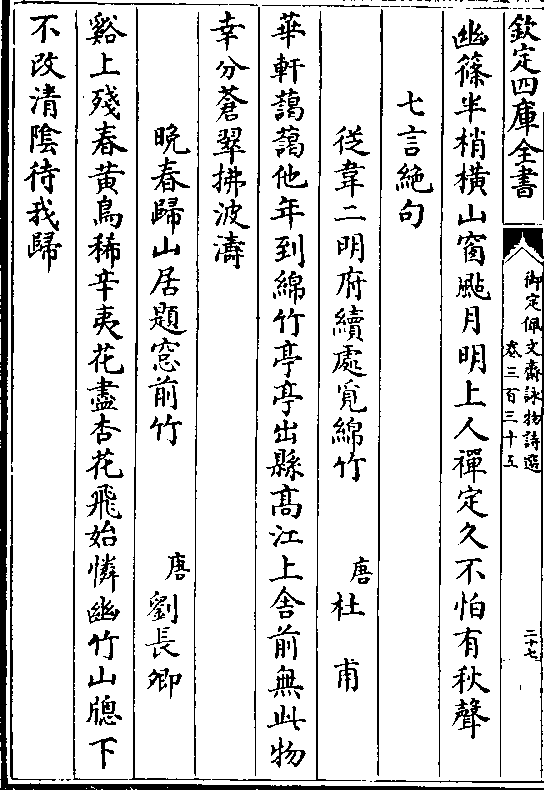 欽定四庫全書
御定佩文齋詠物詩選
卷三百三十五
二十七
幽篠半梢橫山窗颭月明上人禪定久不怕有秋聲
七言絶句
從韋二明府續處覔綿竹 唐 杜甫
華軒藹藹他年到綿竹亭亭出縣髙江上舍前無此物
幸分蒼翠拂波濤
晚春歸山居題窓前竹 唐 劉長卿
谿上殘春黄鳥稀辛夷花盡杏花飛始憐幽竹山牕下
不改清陰待我歸